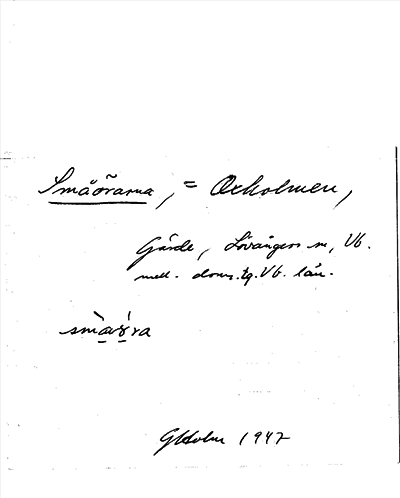 Småörarna, = Oxholmen,
Gärde, Lövångers sn, Vb.
mell. doms.tg. Vb. län.
smàǫɣ́ra
GHolm 1947